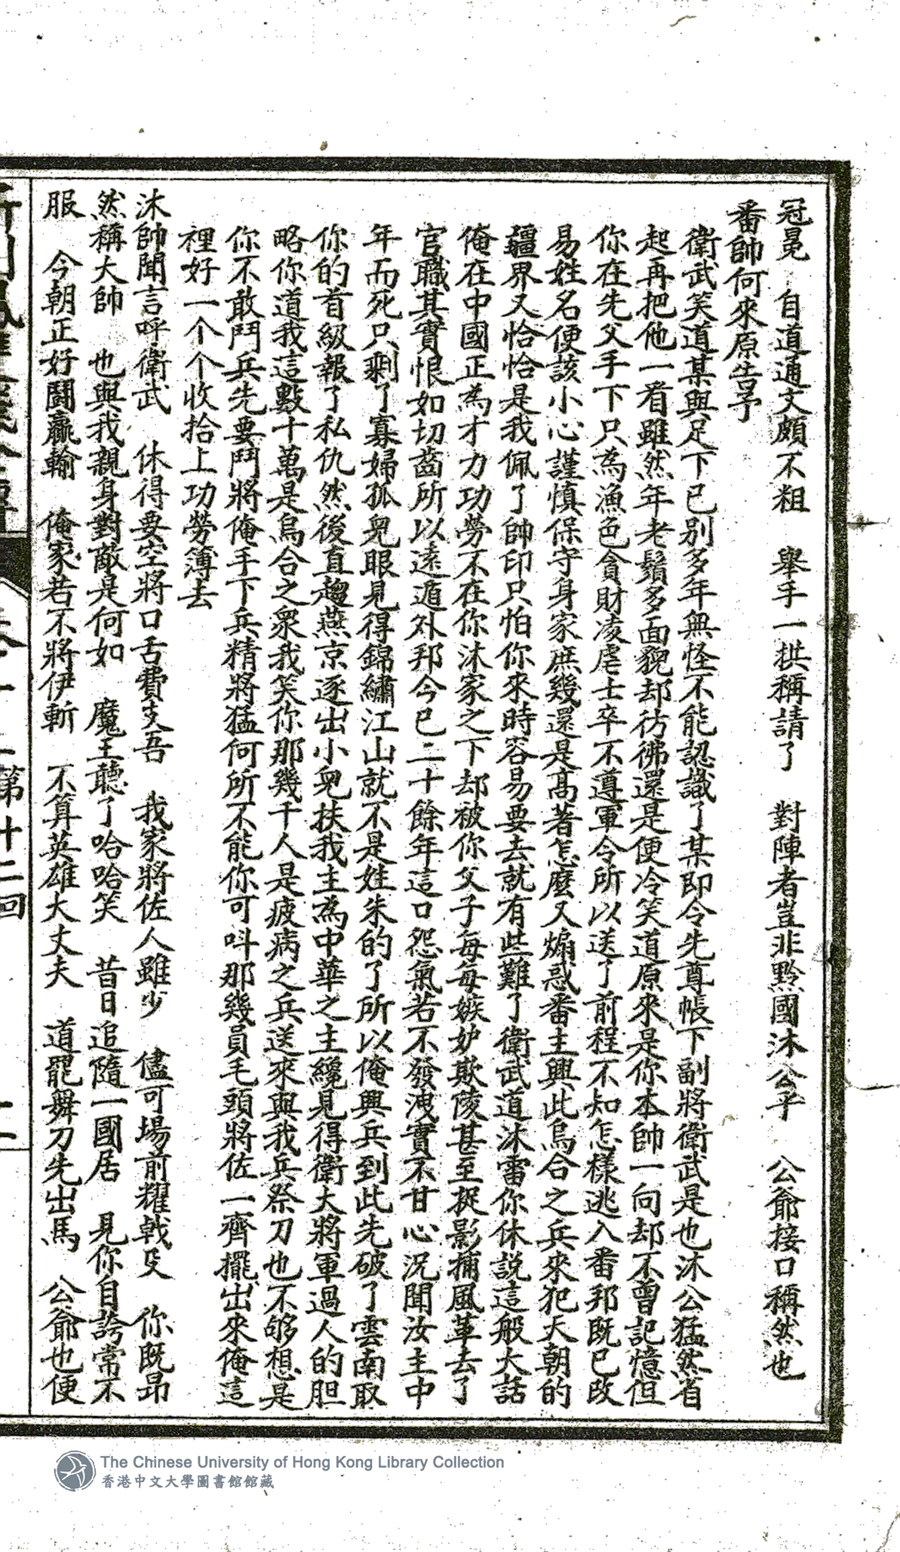 冠冕　自道通文頗不粗　舉手一拱稱請了　對陣者豈非黔國沐公子　公爺接口稱然也
番帥何來原告予
衛武笑道某與足下已别多年無怪不能認識了某即令先尊帳下副將衛武是也沐公猛然省
起再把他一看雖然年老鬚多面貌却彷彿還是便冷笑道原來是你本帥一向却不曾記憶但
你在先父手下只為漁色貪財凌虐士卒不遵軍令所以送了前程不知怎樣逃入番邦既已改
易姓名便該小心謹慎保守身家庶幾還是高著怎麼又煽惑番主興此烏合之兵來犯天朝的
疆界又恰恰是我佩了帥印只怕你來時容易要去就有些難了衛武道沐霤你休説這般大話
俺在中國正為才力功勞不在你沐家之下却被你父子每每嫉妒欺陵甚至捉影捕風革去了
官職其實恨如切齒所以遠遁外邦今已二十餘年這口怨氣若不發洩實不甘心況聞汝主中
年而死只剩了寡婦孤兒眼見得錦繡江山就不是姓朱的了所以俺興兵到此先破了雲南取
你的首級報了私仇然後直趨燕京逐出小兒扶我主為中華之主纔見得衛大將軍過人的胆
略你道我這數十萬是烏合之衆我笑你那幾千人是疲病之兵送來與我兵祭刀也不够想是
你不敢鬥兵先要鬥將俺手下兵精將猛何所不能你可呌那幾員毛頭將佐一齊擺出來俺這
裡好一个个收拾上功勞薄去
沐帥聞言呼衛武　休得要空將口舌費支吾　我家將佐人雖少　儘可場前耀戟殳　你既昂
然稱大帥　也與我親身對敵是何如　魔王聽了哈哈笑　昔日追隨一國居　見你自誇常不
服　今朝正好鬪贏輸　俺家若不將伊斬　不算英雄大丈夫　道罷舞刀先出馬　公爺也便
第十二回
The Chinese University of Hong Kong Library Collection
香港中文大學圖書館館藏